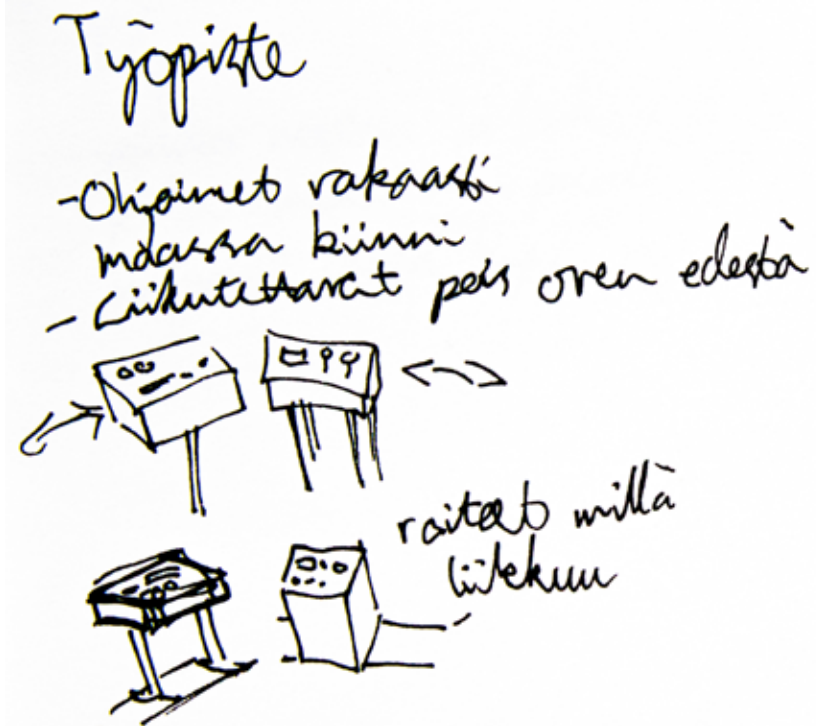 Työpiste
-Ohjaimet vakaasti
maassa kiinni
- Liikutettavat pois oven edestä
raiteet millä
liikkuu